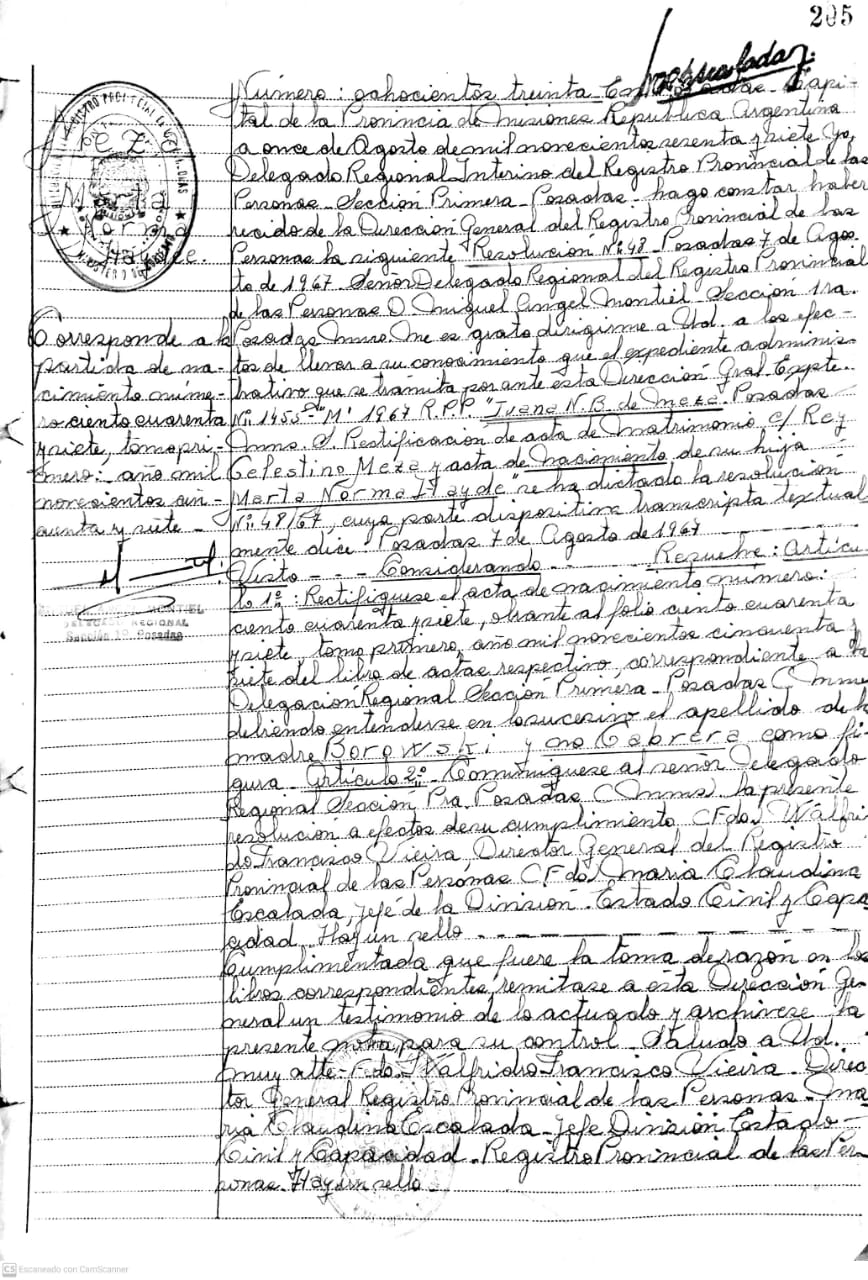 205
Número: ochocientos treinta En Posadas Capi-
tal de la Provincia de Misiones Republica Argentina
a once de Agosto de mil novecientos sesenta y siete Yo,
Delegado Regional Interino del Registro Provincial de las
Personas Sección Primera - Posadas - hago constar haber
recido de la Dirección General del Registro Provincial de las
Personas la siguiente "Resolución Nº 48 - Posadas 7 de Agos-
to de 1967. Señor Delegado Regional del Registro Provincial
de las Personas D. Miguel Angel Montiel - Sección 1ra.
Posadas Mnes. Me es grato dirigirme a Ud. a los efec-
tos de llevar a su conocimiento que el expediente adminis-
trativo que se tramita por ante esta Dirección Gral. Expte.
Nº 1455 - "M" 1967 R.P.P. "Juana N.B. de Meza - Posadas
Mnes. S. Rectificación de acta de matrimonio c/ Rey
Celestino Meza y acta de nacimiento de su hija
Marta Norma Haydé" se ha dictado la resolución
Nº 48/67, cuya parte dispositiva transcripta textual
mente dice: Posadas 7 de Agosto de 1967
Visto - - - Considerando - - - Resuelve: Artícu
lo 1º: Rectifíquese el acta de nacimiento número:
ciento cuarenta y siete, obrante al folio ciento cuarenta
y siete, tomo primero, año mil novecientos cincuenta y
siete del libro de actas respectivo, correspondiente a la
Delegación Regional Sección Primera - Posadas (Mnes)
debiendo entenderse en lo sucesivo el apellido de la
madre Borowski y no Cabrera como fi-
gura. Artículo 2º - Comuníquese al señor Delegado
Regional Sección Pra. Posadas (Mnes). la presente
resolución a efectos de su cumplimiento (Fdo.) Walfri
do Francisco Vieira Director General del Registro
Provincial de las Personas (Fdo.) Maria Claudina
Escalada, Jefé de la División - Estado Civil y Capa
cidad. Hay un sello
Cumplimentada que fuere la toma de razón en los
libros correspondientes, remitase a esta Dirección Ge-
neral un testimonio de lo actuado y archivese la
presente nota para su control. Saludo a Ud.
muy atte - Fdo. Walfridro Francisco Vieira - Direc
tor General Registro Provincial de las Personas - Ma
ria Claudina Escalada - Jefe División Estado -
Civil y Capacidad - Registro Provincial de las Per-
sonas. Hay un sello
Meza
Marta
Norma
Haydee.
Corresponde a la
partida de na-
cimiento núme-
ro ciento cuarenta
y siete, tomo pri-
mero: año mil
novecientos cin-
cuenta y siete
MIGUEL ANGEL MONTIEL
DELEGADO REGIONAL
Sección 1ª Posadas
CS Escaneado con CamScanner